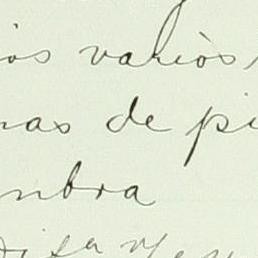 ios variòs
nas de pi
mbra